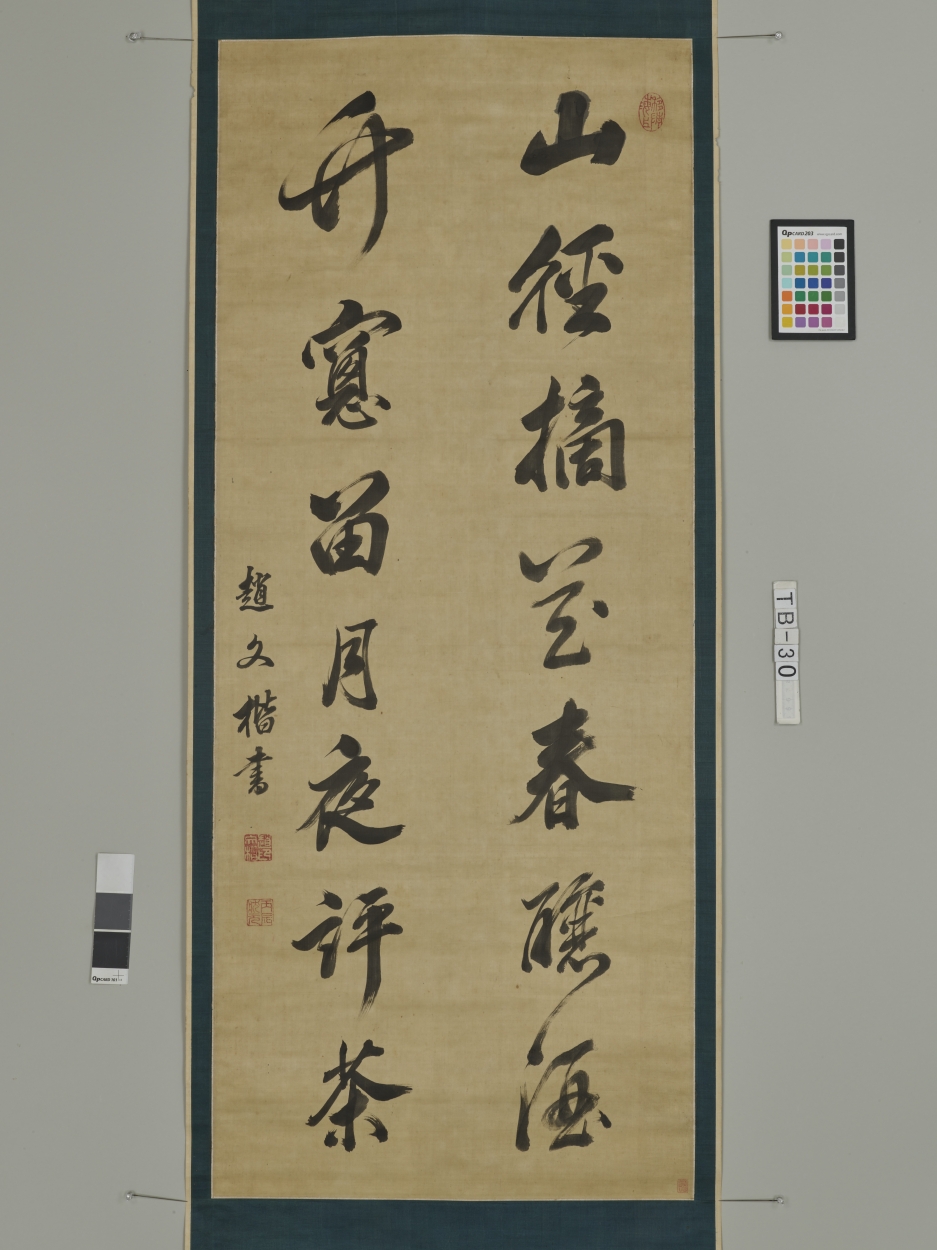 山徑摘花春釀酒
竹窻留月夜評茶
趙文楷書
QpCARD 203
TB-30
QpCARD 101